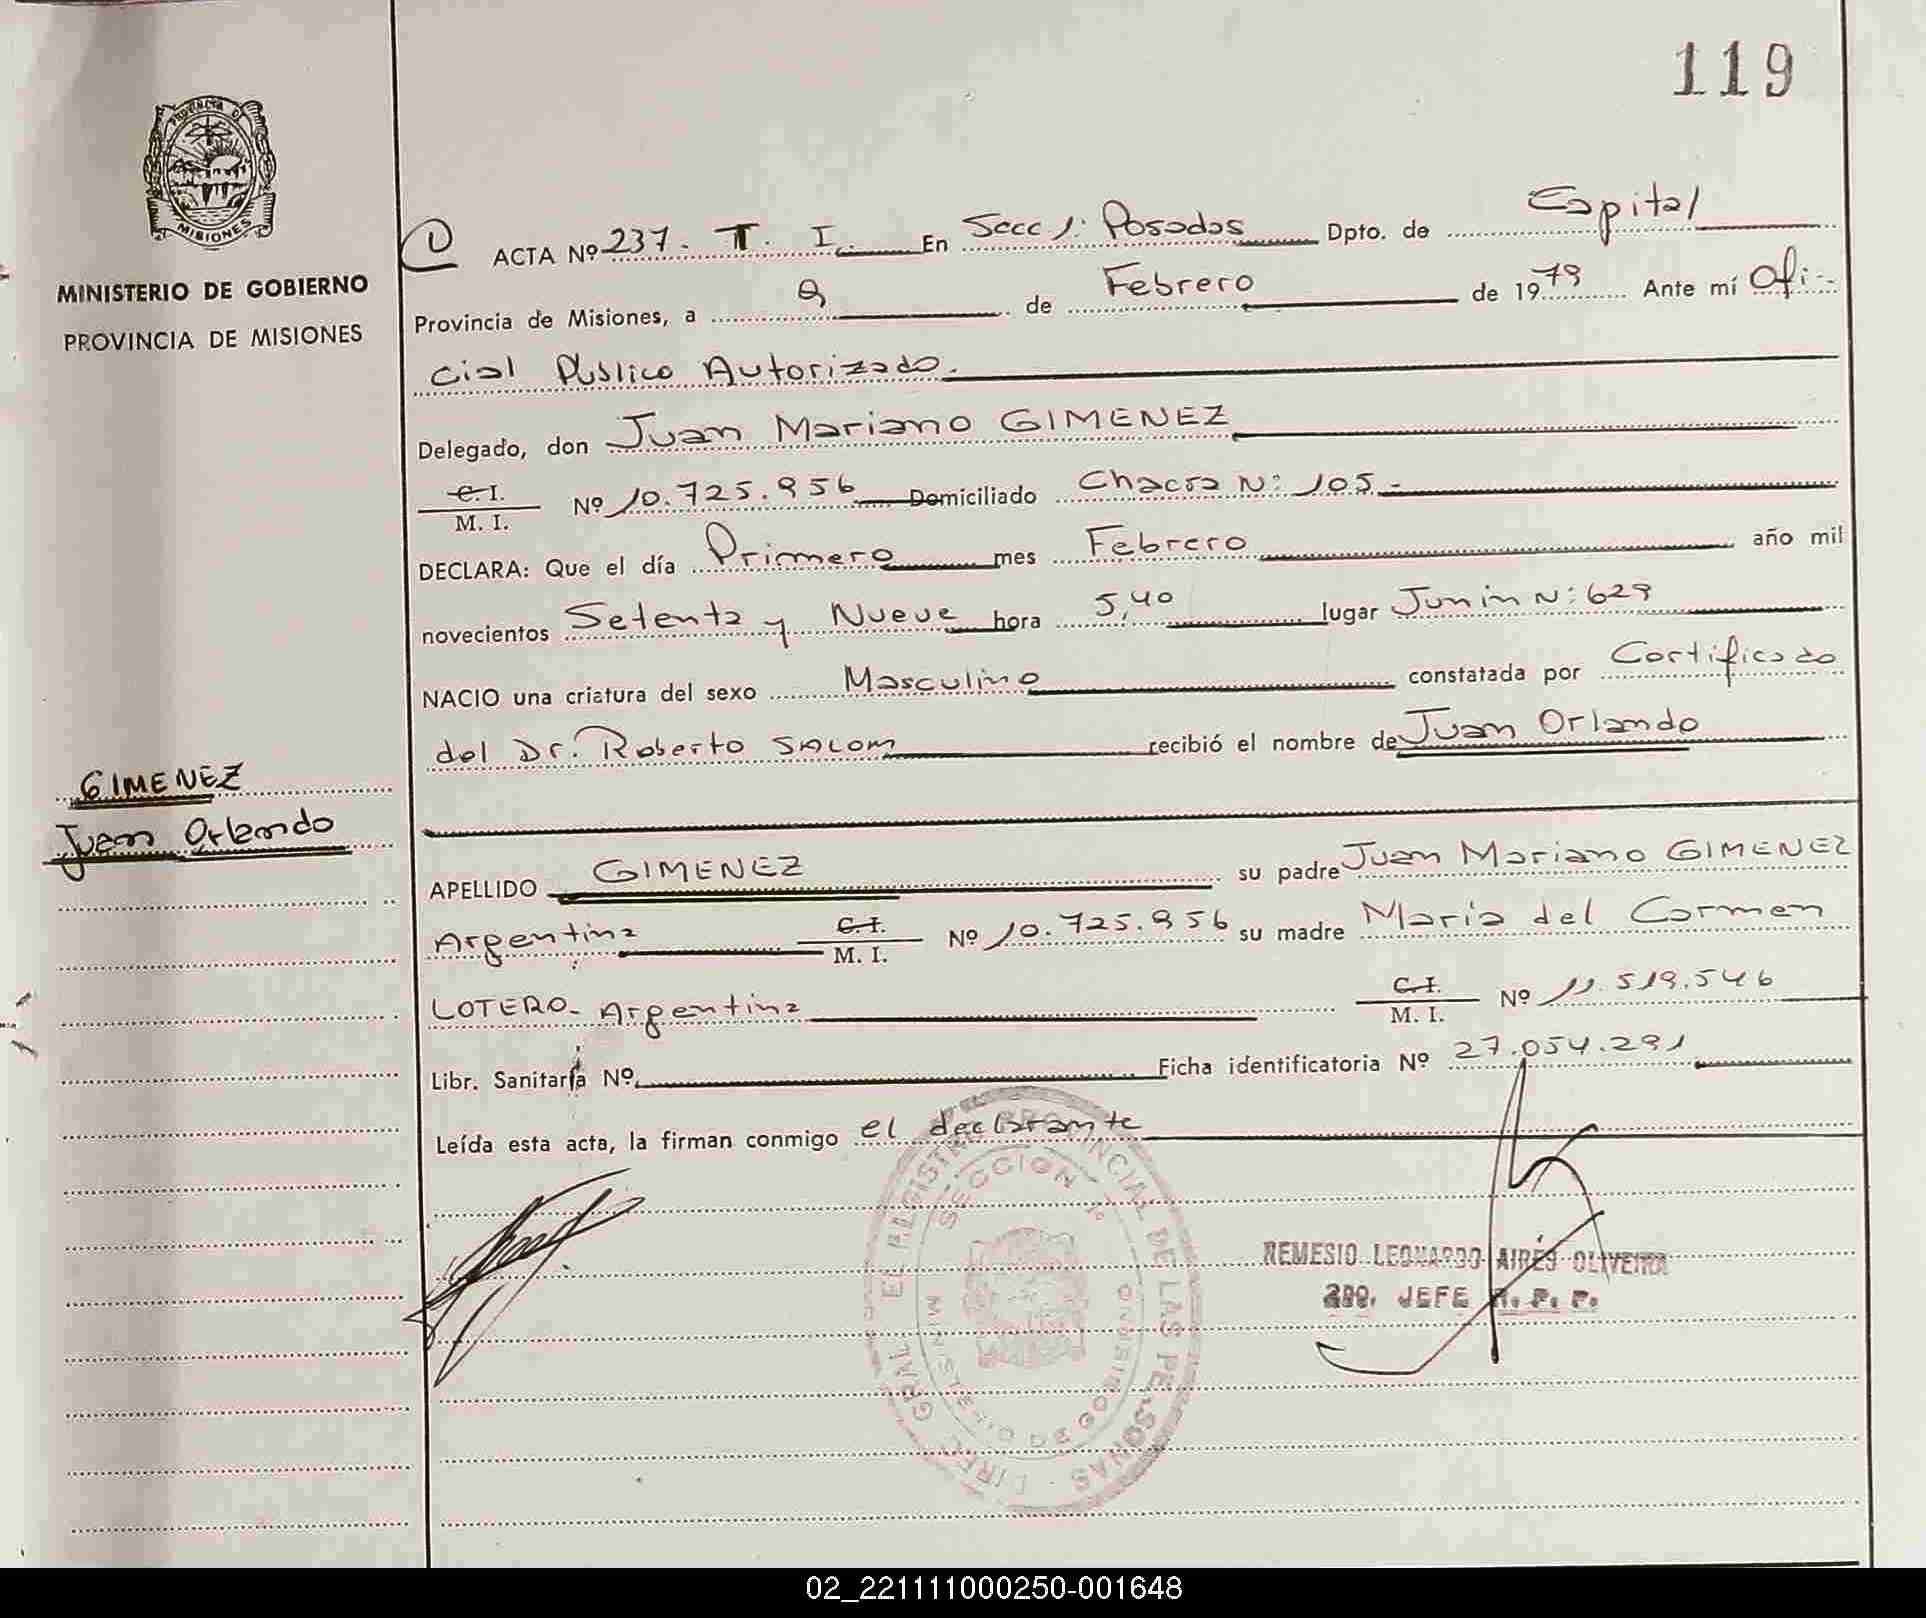 119
PROVINCIA DE
MISIONES
MINISTERIO DE GOBIERNO
PROVINCIA DE MISIONES
ACTA Nº 237. T. I. En Secc 1: Posadas Dpto. de Capital
Provincia de Misiones, a 9 de Febrero de 1979 Ante mí Ofi-
cial Publico Autorizado.
Delegado, don Juan Mariano GIMENEZ
C. I.
M. I. Nº 10.725.956 Domiciliado Chacra N: 105-
DECLARA: Que el día Primero mes Febrero año mil
novecientos Setenta y Nueve hora 5,40 lugar Junin N: 629
NACIO una criatura del sexo Masculino constatada por Certificado
del Dr. Roberto SALOM recibió el nombre de Juan Orlando
GIMENEZ
Juan Orlando
APELLIDO GIMENEZ su padre Juan Mariano GIMENEZ
Argentina C. I.
M. I. Nº 10.725.956 su madre Maria del Carmen
LOTERO- Argentina C. I.
M. I. Nº 11.519.546
Libr. Sanitaria Nº Ficha identificatoria Nº 27.054.291
Leída esta acta, la firman conmigo el declarante
DIREC GRAL EL REGISTRO PROVINCIAL DE LAS PERSONAS
SECCION 1º
REMESIO LEONARDO AIRES OLIVEIRA
2DO. JEFE R. P. P.
02_221111000250-001648